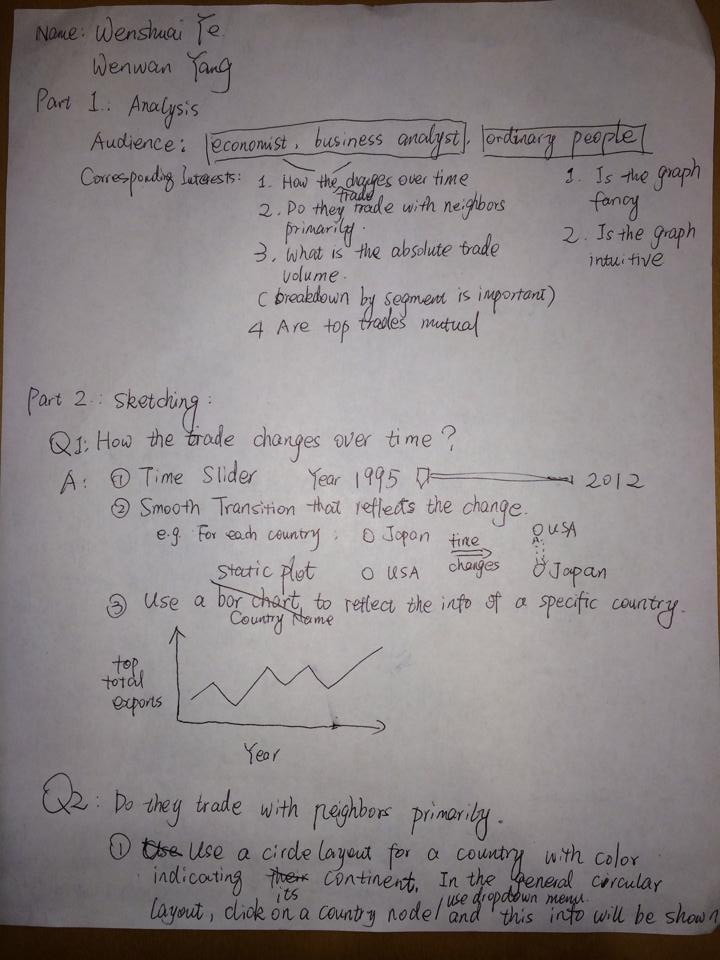 Name: Wenshuai Ye
Wenwan Yang
Part 1.: Analysis
Audience: economist, business analyst, ordinary people
Corresponding Interests:
1. How the trade changes over time
2. Do they trade with neighbors
primarily.
3. What is the absolute trade
volume.
( breakdown by segment is important)
4 Are top trades mutual
1. Is the graph
fancy
2. Is the graph
intuitive
Part 2.: Sketching:
Q1: How the trade changes over time?
A: ① Time Slider Year 1995 2012
② Smooth Transition that reflects the change.
e.g. For each country: O Japan time O USA
Static plot O USA changes O Japan
③ Use a bar chart to reflect the info of a specific country.
Country Name
top
total
exports
Year
Q2: Do they trade with neighbors primarily.
① Use Use a circle layout for a country with color
indicating their its continent. In the general circular
layout, click on a country node/use dropdown menu. and this info will be shown